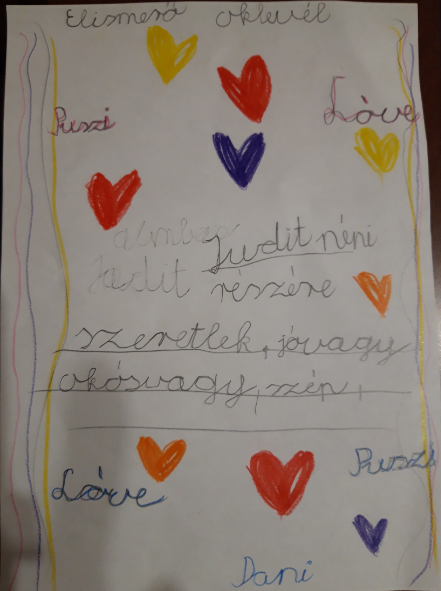 Elismerő oklevél
Puszi
Löve
Judit néni
Judit részére
szeretlek, jóvagy
okósvagy, szép,
Löve
Puszi
Dani